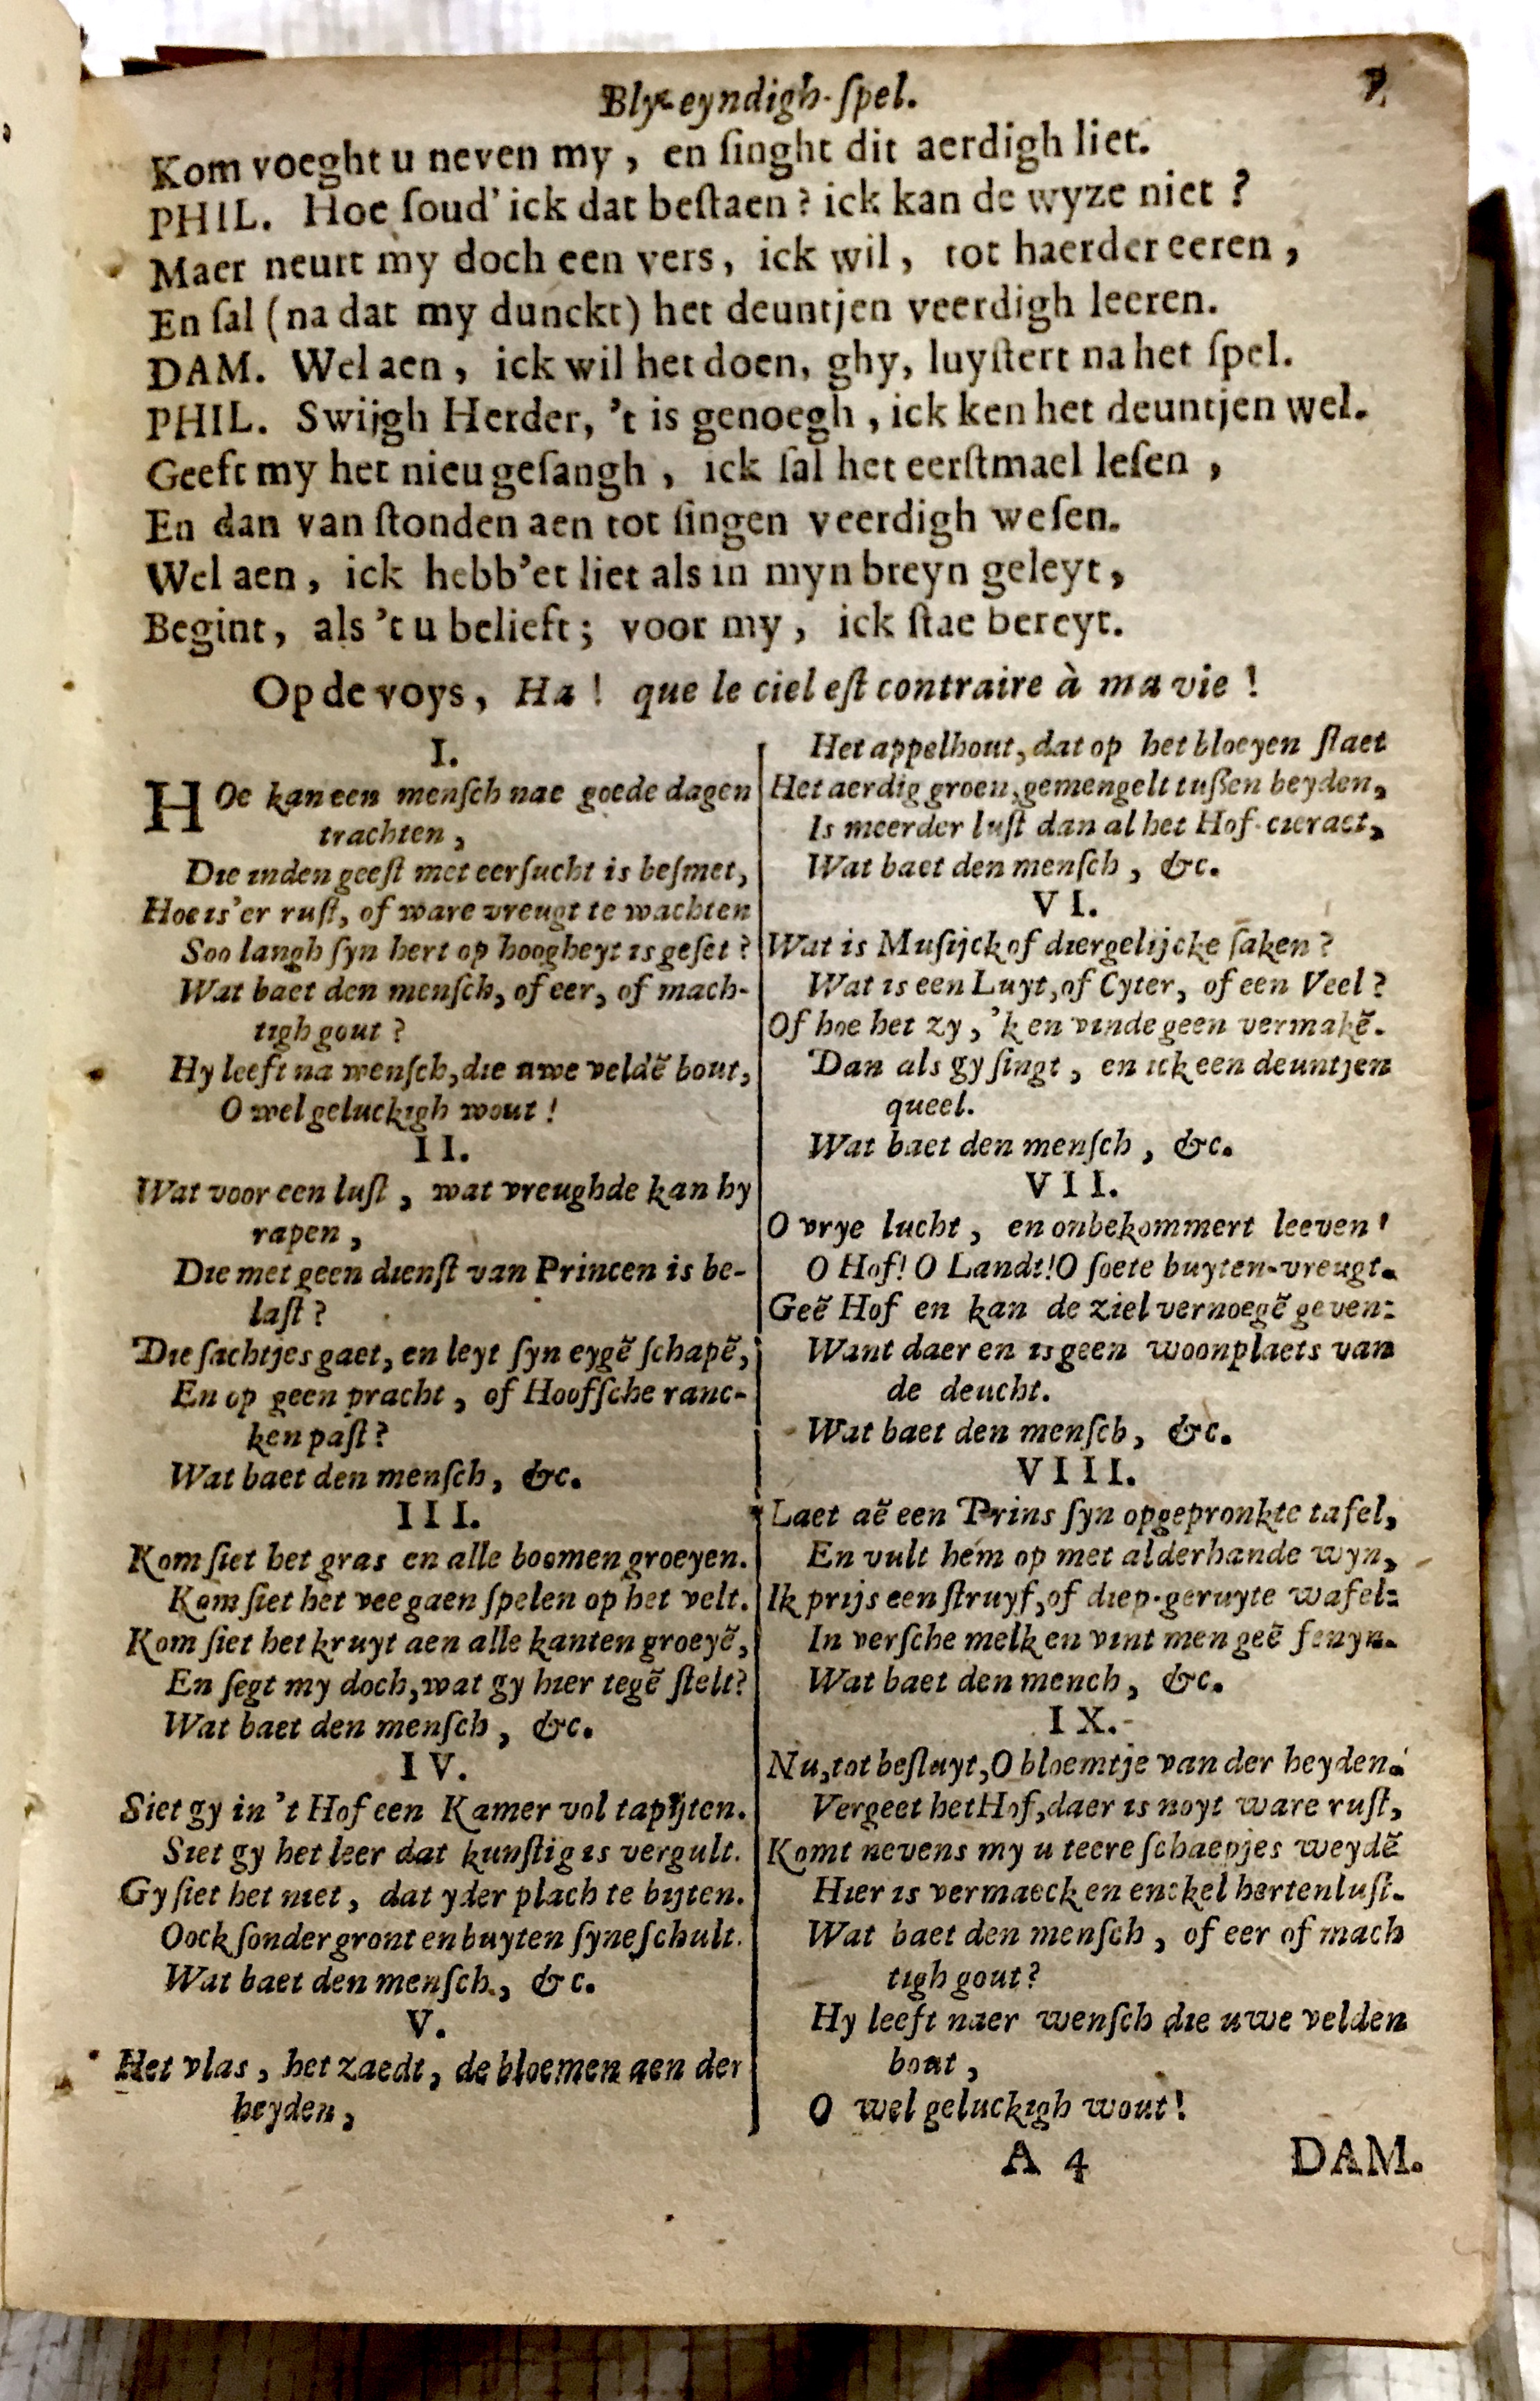 Bly-eyndigh-ſpel. 7
Kom voeght u neven my, en ſinght dit aerdigh liet.
PHIL. Hoe ſoud' ick dat beſtaen? ick kan de wyze niet?
Maer neurt my doch een vers, ick wil, tot haerder eeren,
En ſal (na dat my dunckt) het deuntjen veerdigh leeren.
DAM. Wel aen, ick wil het doen, ghy, luyſtert na het ſpel.
PHIL. Swijgh Herder, 't is genoegh, ick ken het deuntjen wel.
Geeft my het nieu geſangh, ick ſal het eerſtmael leſen,
En dan van ſtonden aen tot ſingen veerdigh weſen.
Wel aen, ick hebb'et liet als in myn breyn geleyt,
Begint, als 't u belieft; voor my, ick ſtae bereyt.
Op de voys, Ha! que le ciel eſt contraire à ma vie!
I.
HOe kan een menſch nae goede dagen
trachten,
Die inden geeſt met eerſucht is beſmet,
Hoe is'er ruſt, of ware vreugt te wachten
Soo langh ſyn hert op hoogheyt is geſet?
Wat baet den menſch, of eer, of mach-
tigh gout?
Hy leeft na wenſch, die uwe veldẽ bout,
O wel geluckigh wout!
II.
Wat voor een luſt, wat vreughde kan hy
rapen,
Die met geen dienſt van Princen is be-
laſt?
Die ſachtjes gaet, en leyt ſyn eygẽ ſchapẽ,
En op geen pracht, of Hoofſche ranc-
ken paſt?
Wat baet den menſch, &c.
III.
Kom ſiet het gras en alle boomen groeyen.
Kom ſiet het vee gaen ſpelen op het velt.
Kom ſiet het kruyt aen alle kanten groeyẽ,
En ſegt my doch, wat gy hier tegẽ ſtelt?
Wat baet den menſch, &c.
IV.
Siet gy in 't Hof een Kamer vol tapijten.
Siet gy het leer dat kunſtig is vergult.
Gy ſiet het niet, dat yder plach te bijten.
Oock ſonder gront en buyten ſyne ſchult.
Wat baet den menſch, &c.
V.
Het vlas, het zaedt, de bloemen aen der
heyden,
Het appelhout, dat op het bloeyen ſtaet
Het aerdig groen, gemengelt tußen beyden,
Is meerder luſt dan al het Hof-cieraet,
Wat baet den menſch, &c.
VI.
Wat is Muſijck of diergelijcke ſaken?
Wat is een Luyt, of Cyter, of een Veel?
Of hoe het zy, 'k en vinde geen vermakẽ.
Dan als gy ſingt, en ick een deuntjen
queel.
Wat baet den menſch, &c.
VII.
O vrye lucht, en onbekommert leeven!
O Hof! O Landt! O ſoete buyten-vreugt.
Geẽ Hof en kan de ziel vernoegẽ geven:
Want daer en is geen woonplaets van
de deucht.
Wat baet den menſch, &c.
VIII.
Laet aẽ een Prins ſyn opgepronkte tafel,
En vult hem op met alderhande wyn,
Ik prijs een ſtruyf, of diep-geruyte wafel:
In verſche melk en vint men geẽ fenyn.
Wat baet den mench, &c.
IX.
Nu, tot beſluyt, O bloemtje van der heyden!
Vergeet het Hof, daer is noyt ware ruſt,
Komt nevens my u teere ſchaepjes weydẽ
Hier is vermaeck en enckel hertenluſt.
Wat baet den menſch, of eer of mach
tigh gout?
Hy leeft naer wenſch die uwe velden
bout,
O wel geluckigh wout!
A 4 DAM.